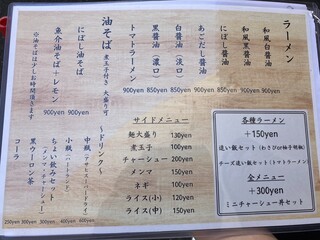 ラーメン
和風白醤油
和風黒醤油
にぼし醤油
あごだし醤油
白醤油（淡口）
黒醤油（濃口）
トマトラーメン
900yen 850yen 850yen 900yen
油そば 煮玉子付き 大盛り可
にぼし油そば
魚介油そば+レモン
900yen 900yen
※油そばは少しお時間頂きます
サイドメニュー
麺大盛り 130yen
煮玉子 100yen
チャーシュー 200yen
メンマ 150yen
ネギ 100yen
ライス(小) 120yen
ライス(中) 150yen
各種ラーメン
+150yen
追い飯セット（わさびor柚子胡椒）
チーズ追い飯セット（トマトラーメン）
全メニュー
+300yen
ミニチャーシュー丼セット
〜ドリンク〜
中瓶（アサヒスーパードライ）
小瓶（ハートランド）
ちょい飲みセット
黒ウーロン茶
コーラ